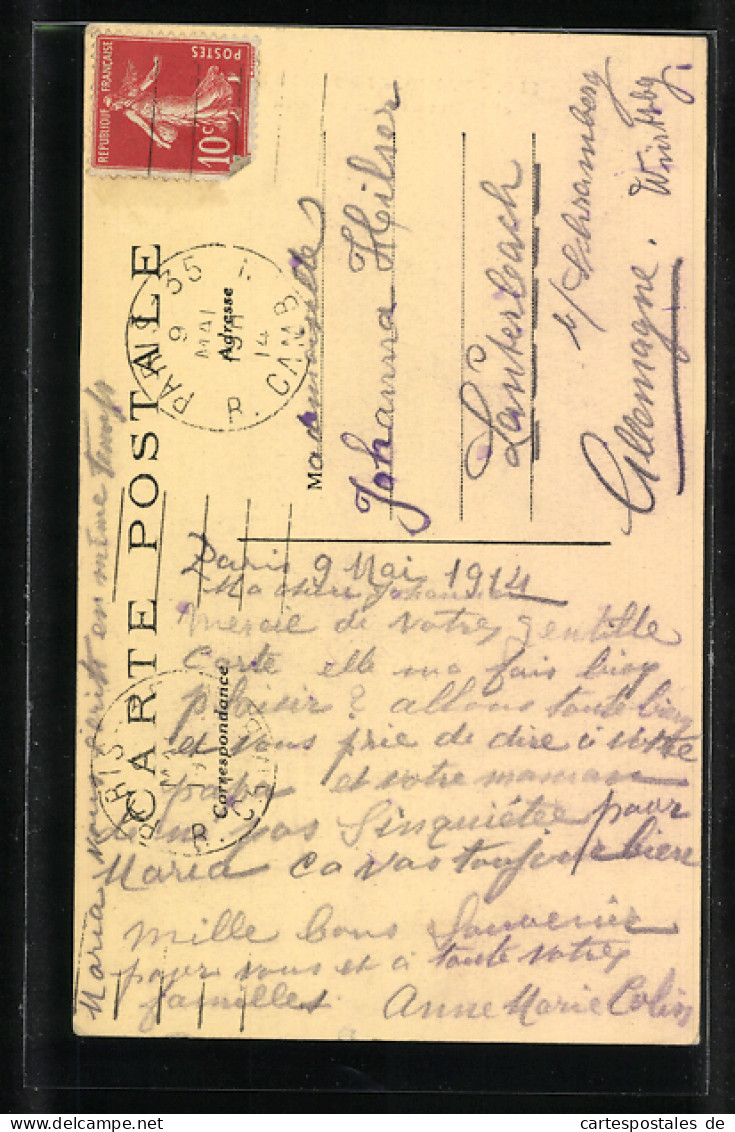 RÉPUBLIQUE FRANÇAISE
POSTES
10c
CARTE POSTALE
Adresse
35
9
MAI
14
R. CAMB
Mademoiselle
Johanna Hilser
Lauterbach
b/Schramberg
Allemagne. Württbg
Correspondance
PARIS
R.
Paris 9 Mai 1914
Ma chere Johanna
Mercie de votres gentille
Carte elle ma fais bien
plaisir? allons toute bien
et vous prie de dire a votre
papa et votre maman
de pas Sinquiétée pour
Maria ca vas toujour bien
Mille bons Souvenir
pour vous et a toute votres
familles. Anne Marie Colin
Maria vous écrit en même temps
cartespostales de